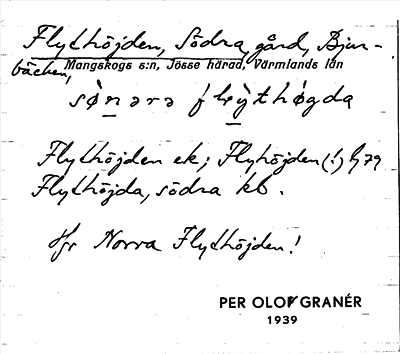 Flythöjden, Södra, gård, Bjur-
bäcken,
Mangskogs s:n, Jösse härad, Värmlands län
Flythöjden ek; Flyhöjden (!) h 79
Flythöjda, södra kb.
Jfr Norra Flythöjden!
PER OLOF GRANÉR
1939